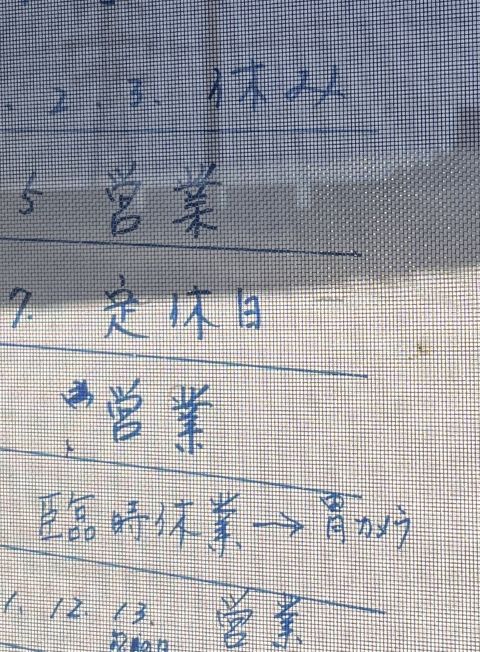 2. 3. 休み
5 営業
7. 定休日
営業
臨時休業→胃カメラ
1. 12. 13. 営業